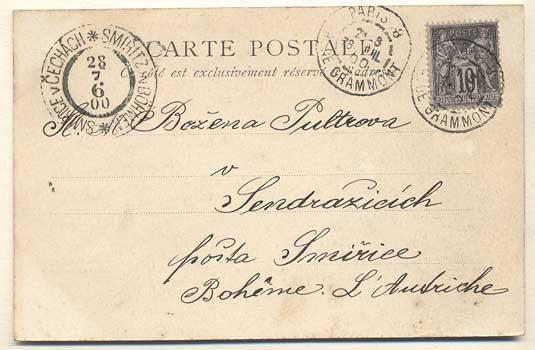 CARTE POSTALE
Ce côté est exclusivement réservé à l'adresse
SMIŘICE v ČECHÁCH * SMIRITZ in BÖHMEN *
28
7
6
00
PARIS 8
R. DE GRAMMONT
10
DE GRAMMONT
Božena Pultrova
v
Sendražicích
pošta Smiřice
Bohême. L'Autriche